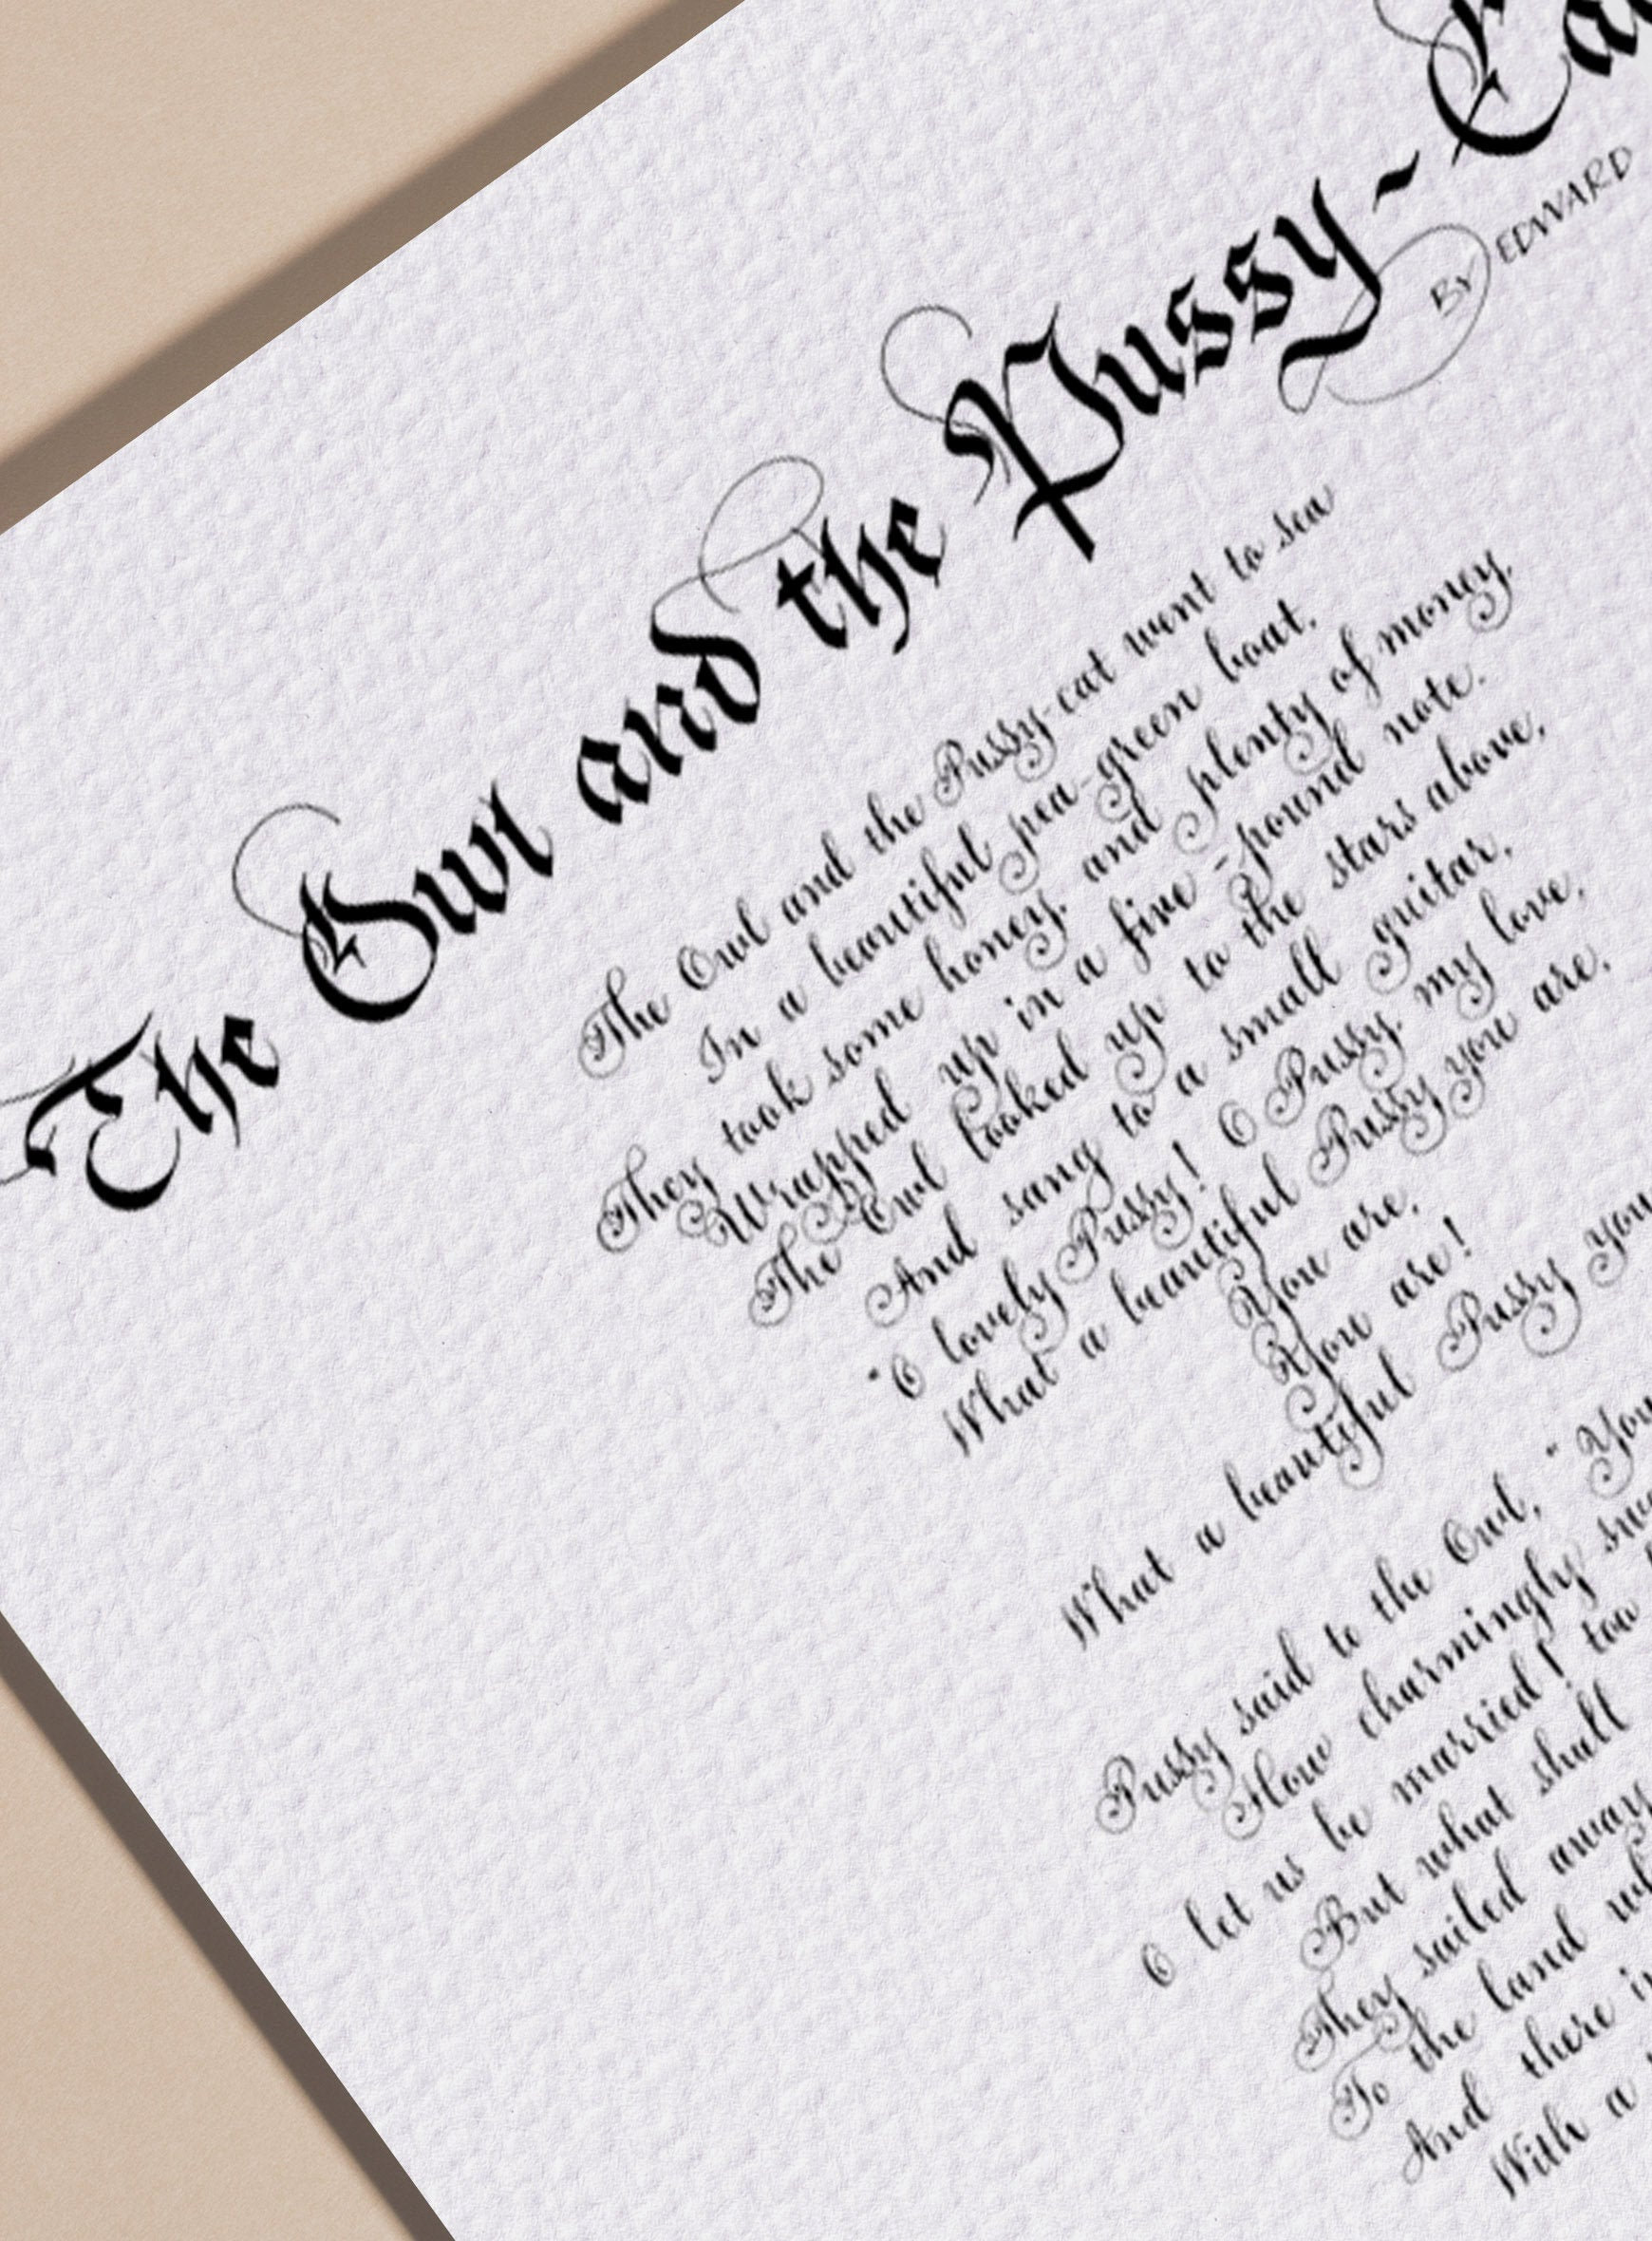 The Owl and the Pussy-Ca
By EDWARD
The Owl and the Pussy-cat went to sea
In a beautiful pea-green boat,
They took some honey, and plenty of money,
Wrapped up in a five-pound note.
The Owl looked up to the stars above,
And sang to a small guitar,
"O lovely Pussy! O Pussy, my love,
What a beautiful Pussy you are,
You are,
You are!
What a beautiful Pussy you
Pussy said to the Owl, "You
How charmingly sw
O let us be married! too
But what shall
They sailed away
To the land wh
And there i
With a